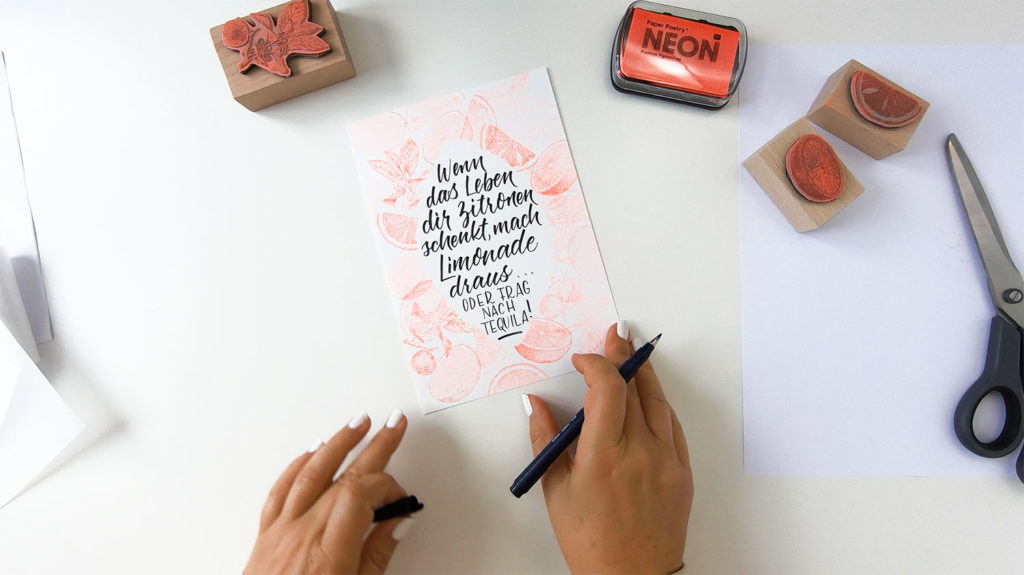 Paper Poetry
NEON
Wenn
das Leben
dir Zitronen
schenkt, mach
Limonade
draus...
ODER FRAG
NACH
TEQUILA!